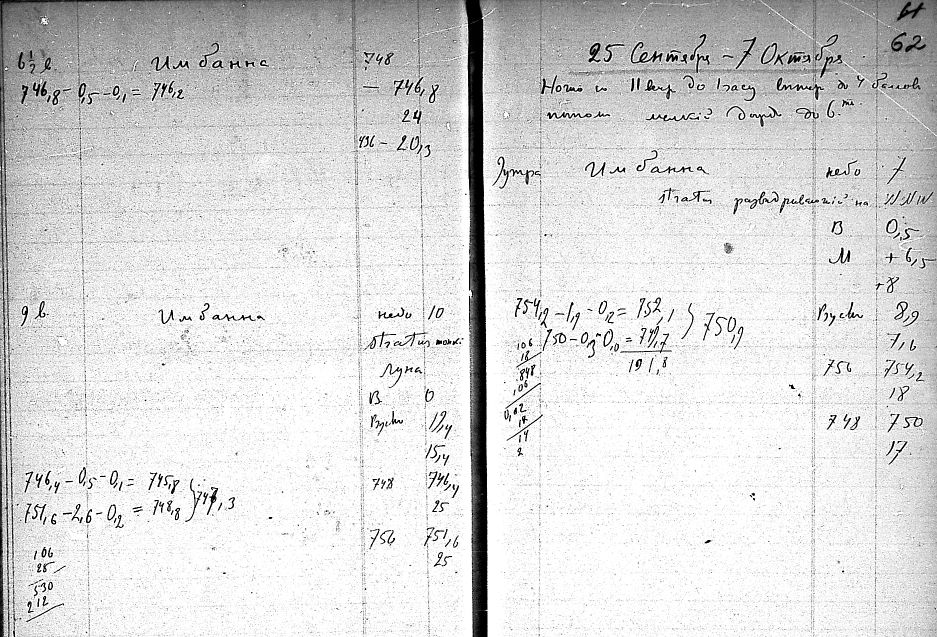 6 1/2 в. Имбанна 748
746,8 - 0,5 - 0,1 = 746,2 — 746,8
24
436 - 20,3
9 в. Имбанна небо 10
stratus
Луна
В 0
19,4
15,4
746,4 - 0,5 - 0,1 = 745,8 748 746,4
25
751,6 - 2,6 - 0,2 = 748,8 } 747,3
756 751,6
25
106
25
530
212
62
25 Сентября - 7 Октября
Ночью до 1 часу ветер до 4 баллов
потом мелкий дождь до 6
7 утра Имбанна небо 7
stratus на NNW
В 0,5
М + 6,5
+ 8
754,2 - 1,9 - 0,2 = 752,1 } 750,9 8,9
750 - 0,3 - 0,0 = 749,7 7,6
191,8
756 754,2
18
748 750
17
106
18
848
106
0,02
18
14
2